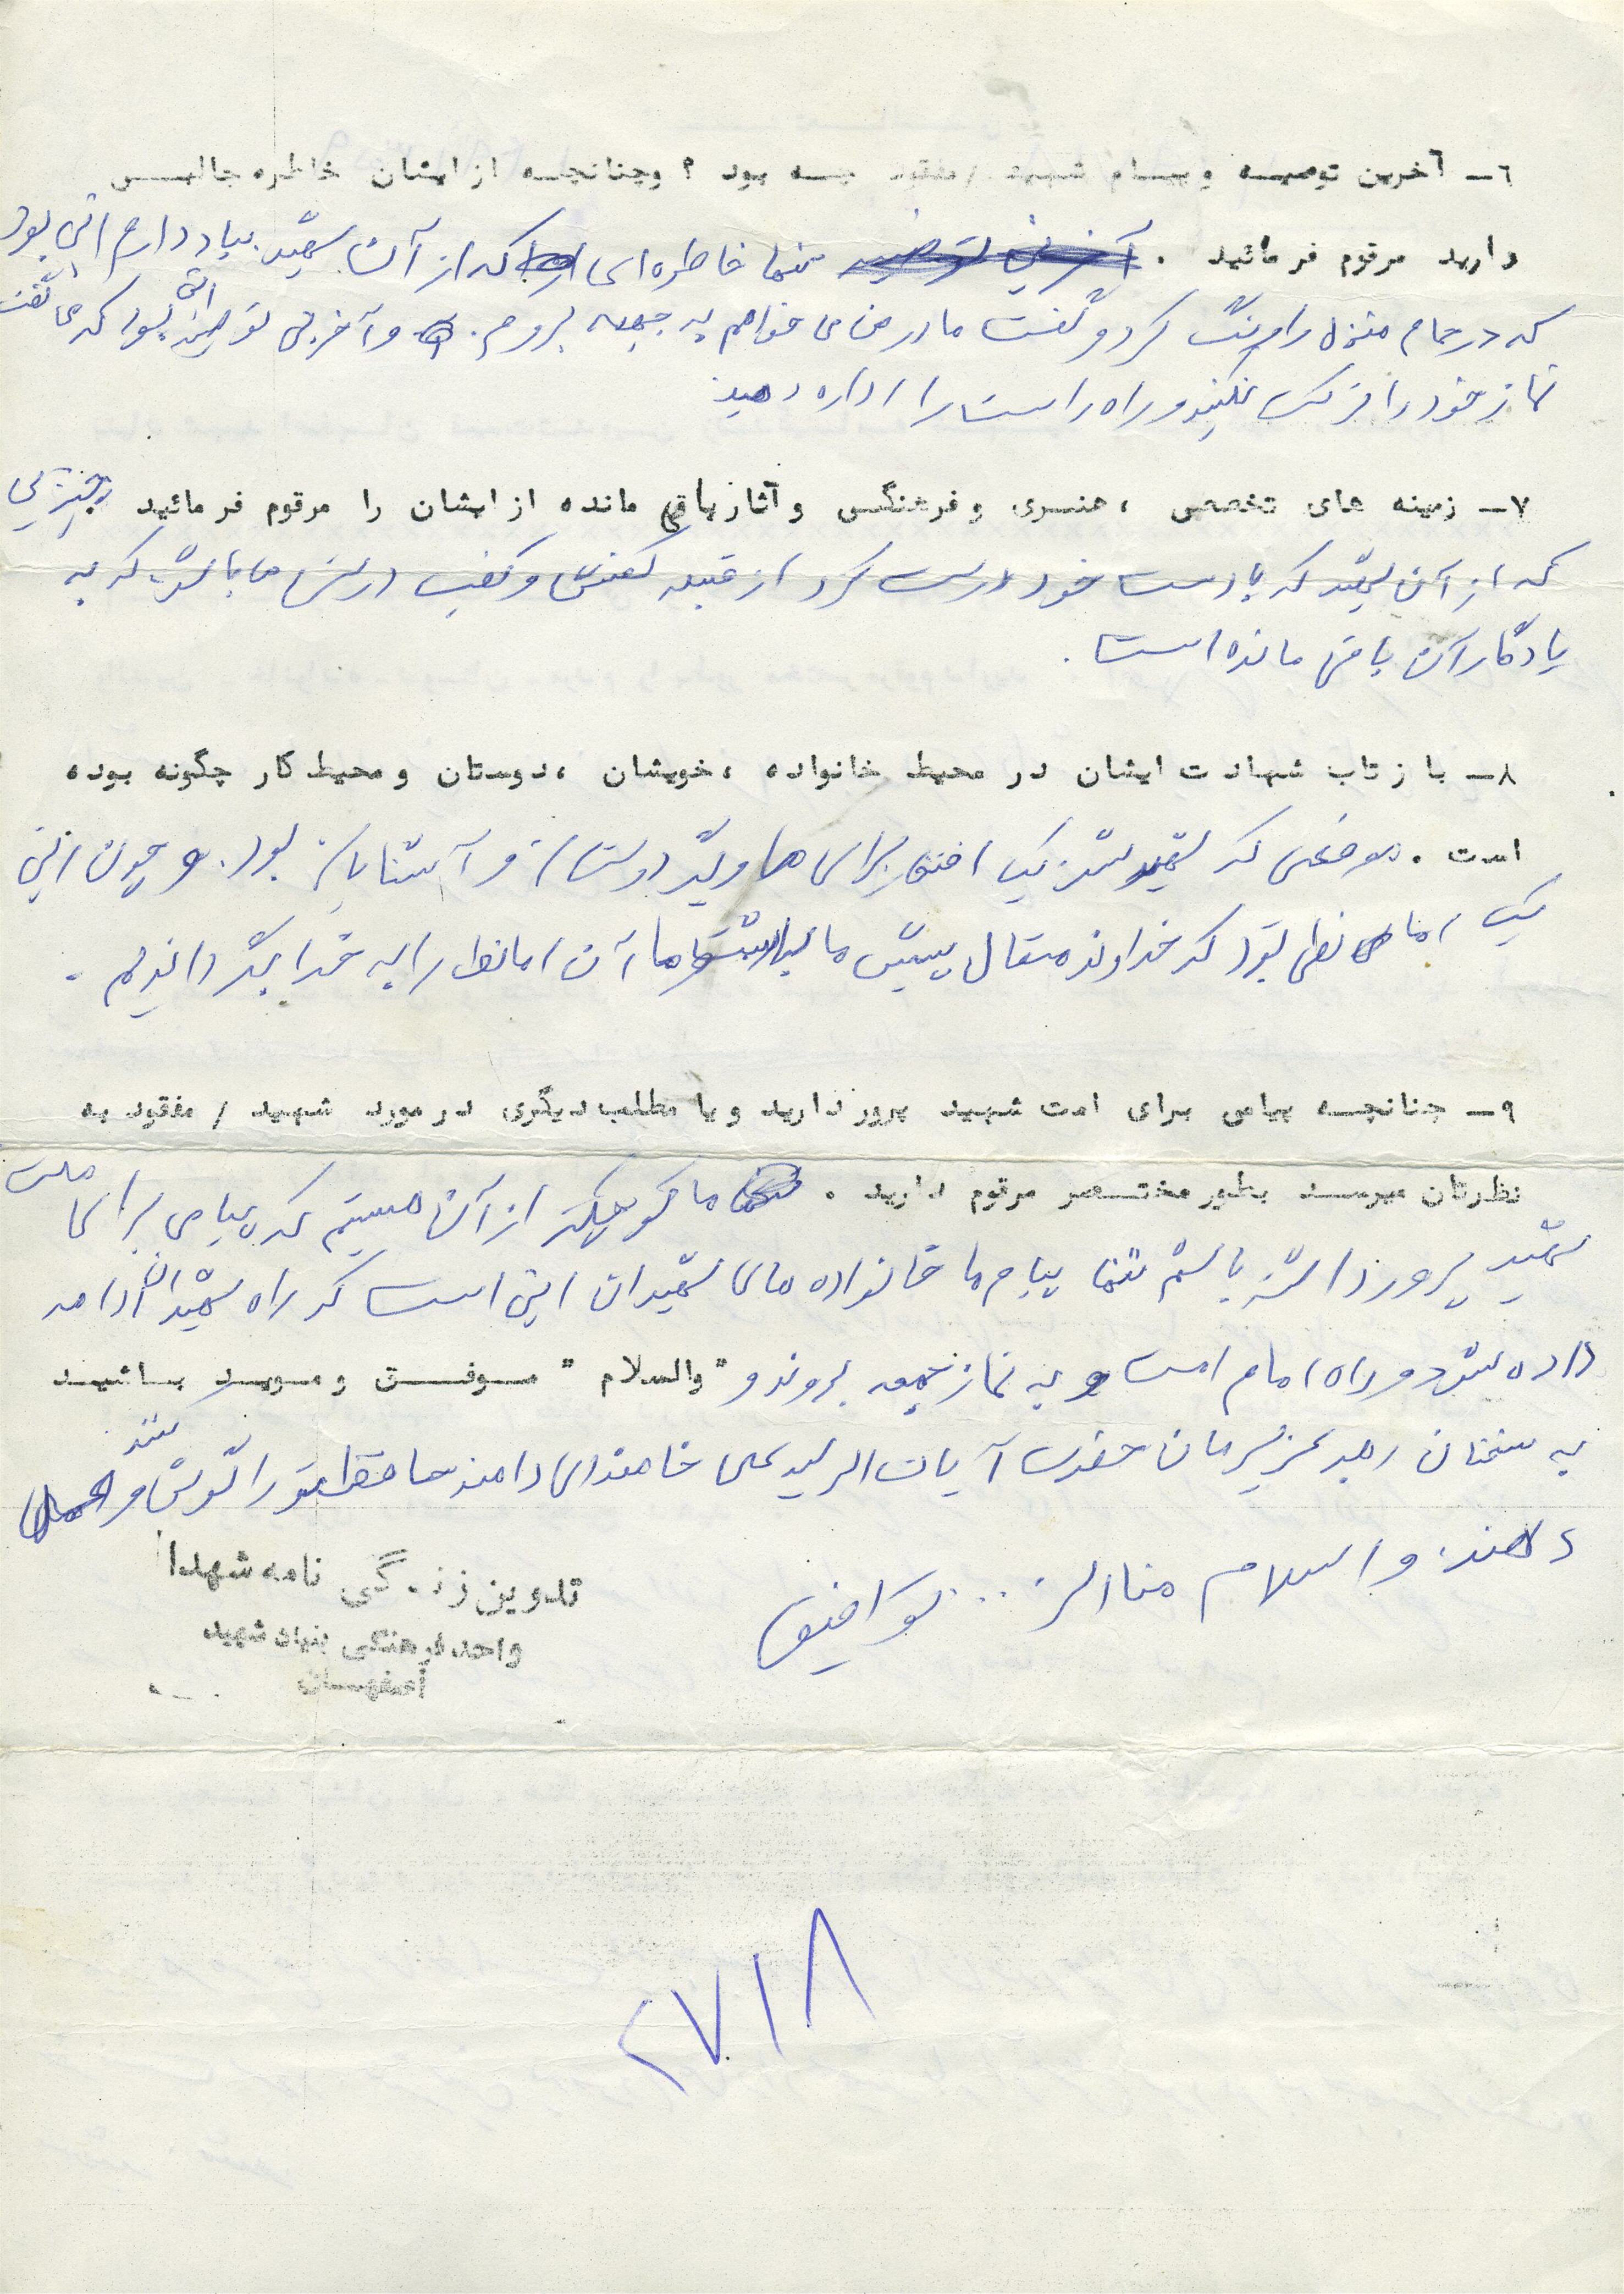 ٦ـ آخرین توصیه و پیام شهید / مفقود چه بود ؟ وچنانچه از ایشان خاطره جالبی
دارید مرقوم فرمائید . تنها خاطره ای که از آن شهید بیاد دارم این بود
که در حمام منزل را رنگ کرد و گفت مادر من می خواهم به جبهه بروم . و آخرین توصیه اش این بود که می گفت
نماز خود را ترک نکنید و راه راست را اداره دهید
٧ـ زمینه های تخصصی ، هنری و فرهنگی و آثار باقی مانده از ایشان را مرقوم فرمائید چیزی
که از آن شهید که با دست خود درست کرد از قبیل کفش و کیف می باشد که به
یادگار آن باقی مانده است .
٨ـ بازتاب شهادت ایشان در محیط خانواده ، خویشان ، دوستان و محیط کار چگونه بوده
است . موقعی که شهید شد یک افتخار برای ما و دوستان و آشنایان بود . و چون این
یک امانطی بود که خداوند متعال پیش ما ما آن امانط را به خدا برگرداندیم .
٩ـ چنانچه پیامی برای امت شهید پرور دارید و یا مطلب دیگری در مورد شهید / مفقود به
نظرتان میرسد بطور مختصر مرقوم دارید . ما کوچکتر از آن هستیم که پیامی برای ملت
شهید پرور داشته باشم تنها پیام ما خانواده های شهیدان این است که راه شهیدان ادامه
داده شود و راه امام است و به نماز جمعه بروند و " والسلام " موفق و موید باشید
به سخنان رهبر عزیزمان حضرت آیات اله سید علی خامنه ای گوش کنند و عمل
دهند . و اسلام
تدوین زندگی نامه شهدا
واحد فرهنگی بنیاد شهید
اصفهان
٢٧١٨